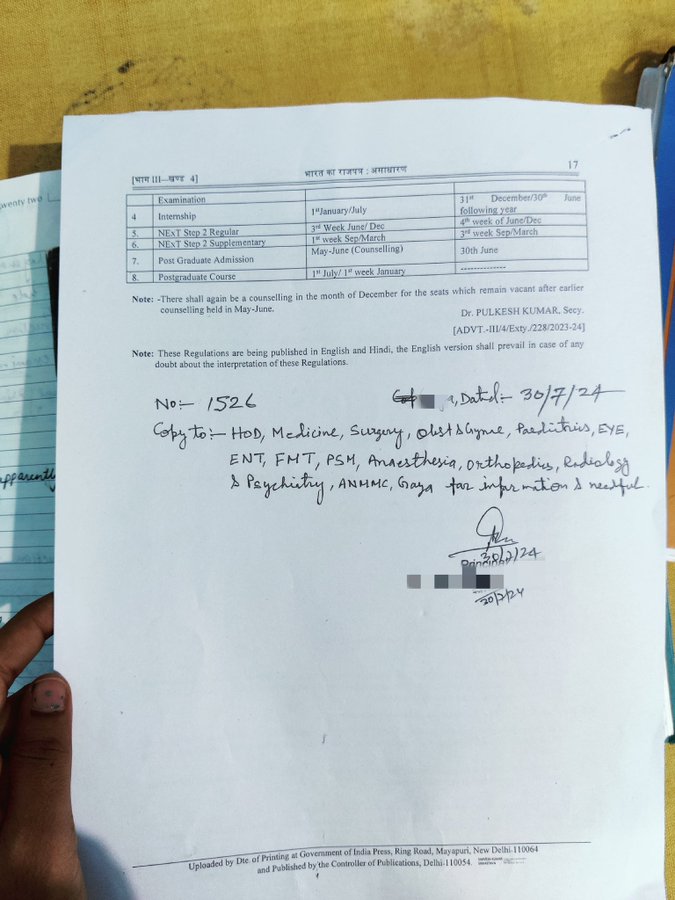 [भाग III—खण्ड 4] भारत का राजपत्र : असाधारण 17
Examination 31st December/30th June following year
4 Internship 1st January/July
5. NExT Step 2 Regular 3rd Week June/ Dec 4th week of June/Dec
6. NExT Step 2 Supplementary 1st week Sep/March 3rd week Sep/March
7. Post Graduate Admission May-June (Counselling) 30th June
8. Postgraduate Course 1st July/ 1st week January --------------
Note: -There shall again be a counselling in the month of December for the seats which remain vacant after earlier
counselling held in May-June.
Dr. PULKESH KUMAR, Secy.
[ADVT.-III/4/Exty./228/2023-24]
Note: These Regulations are being published in English and Hindi, the English version shall prevail in case of any
doubt about the interpretation of these Regulations.
No:- 1526 a, Dated:- 30/7/24
Copy to:- HOD, Medicine, Surgery, Obst & Gynae, Paediatrics, EYE,
ENT, FMT, PSM, Anaesthesia, Orthopedics, Radiology
& Psychiatry, ANMMC, Gaya for information & needful.
30/7/24
Principal
30/7/24
Uploaded by Dte. of Printing at Government of India Press, Ring Road, Mayapuri, New Delhi-110064
and Published by the Controller of Publications, Delhi-110054.
wenty two
apparently